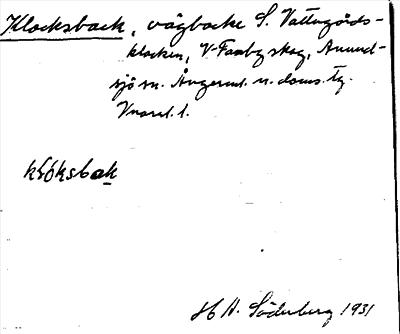 Klocksback, vägbacke S. Vattugårds-
klocken, V-Fanbyskog, Anund-
sjö sn. Ångerml. n. doms. tg.
Vnord. l.
klóksbak
H A. Söderberg 1931